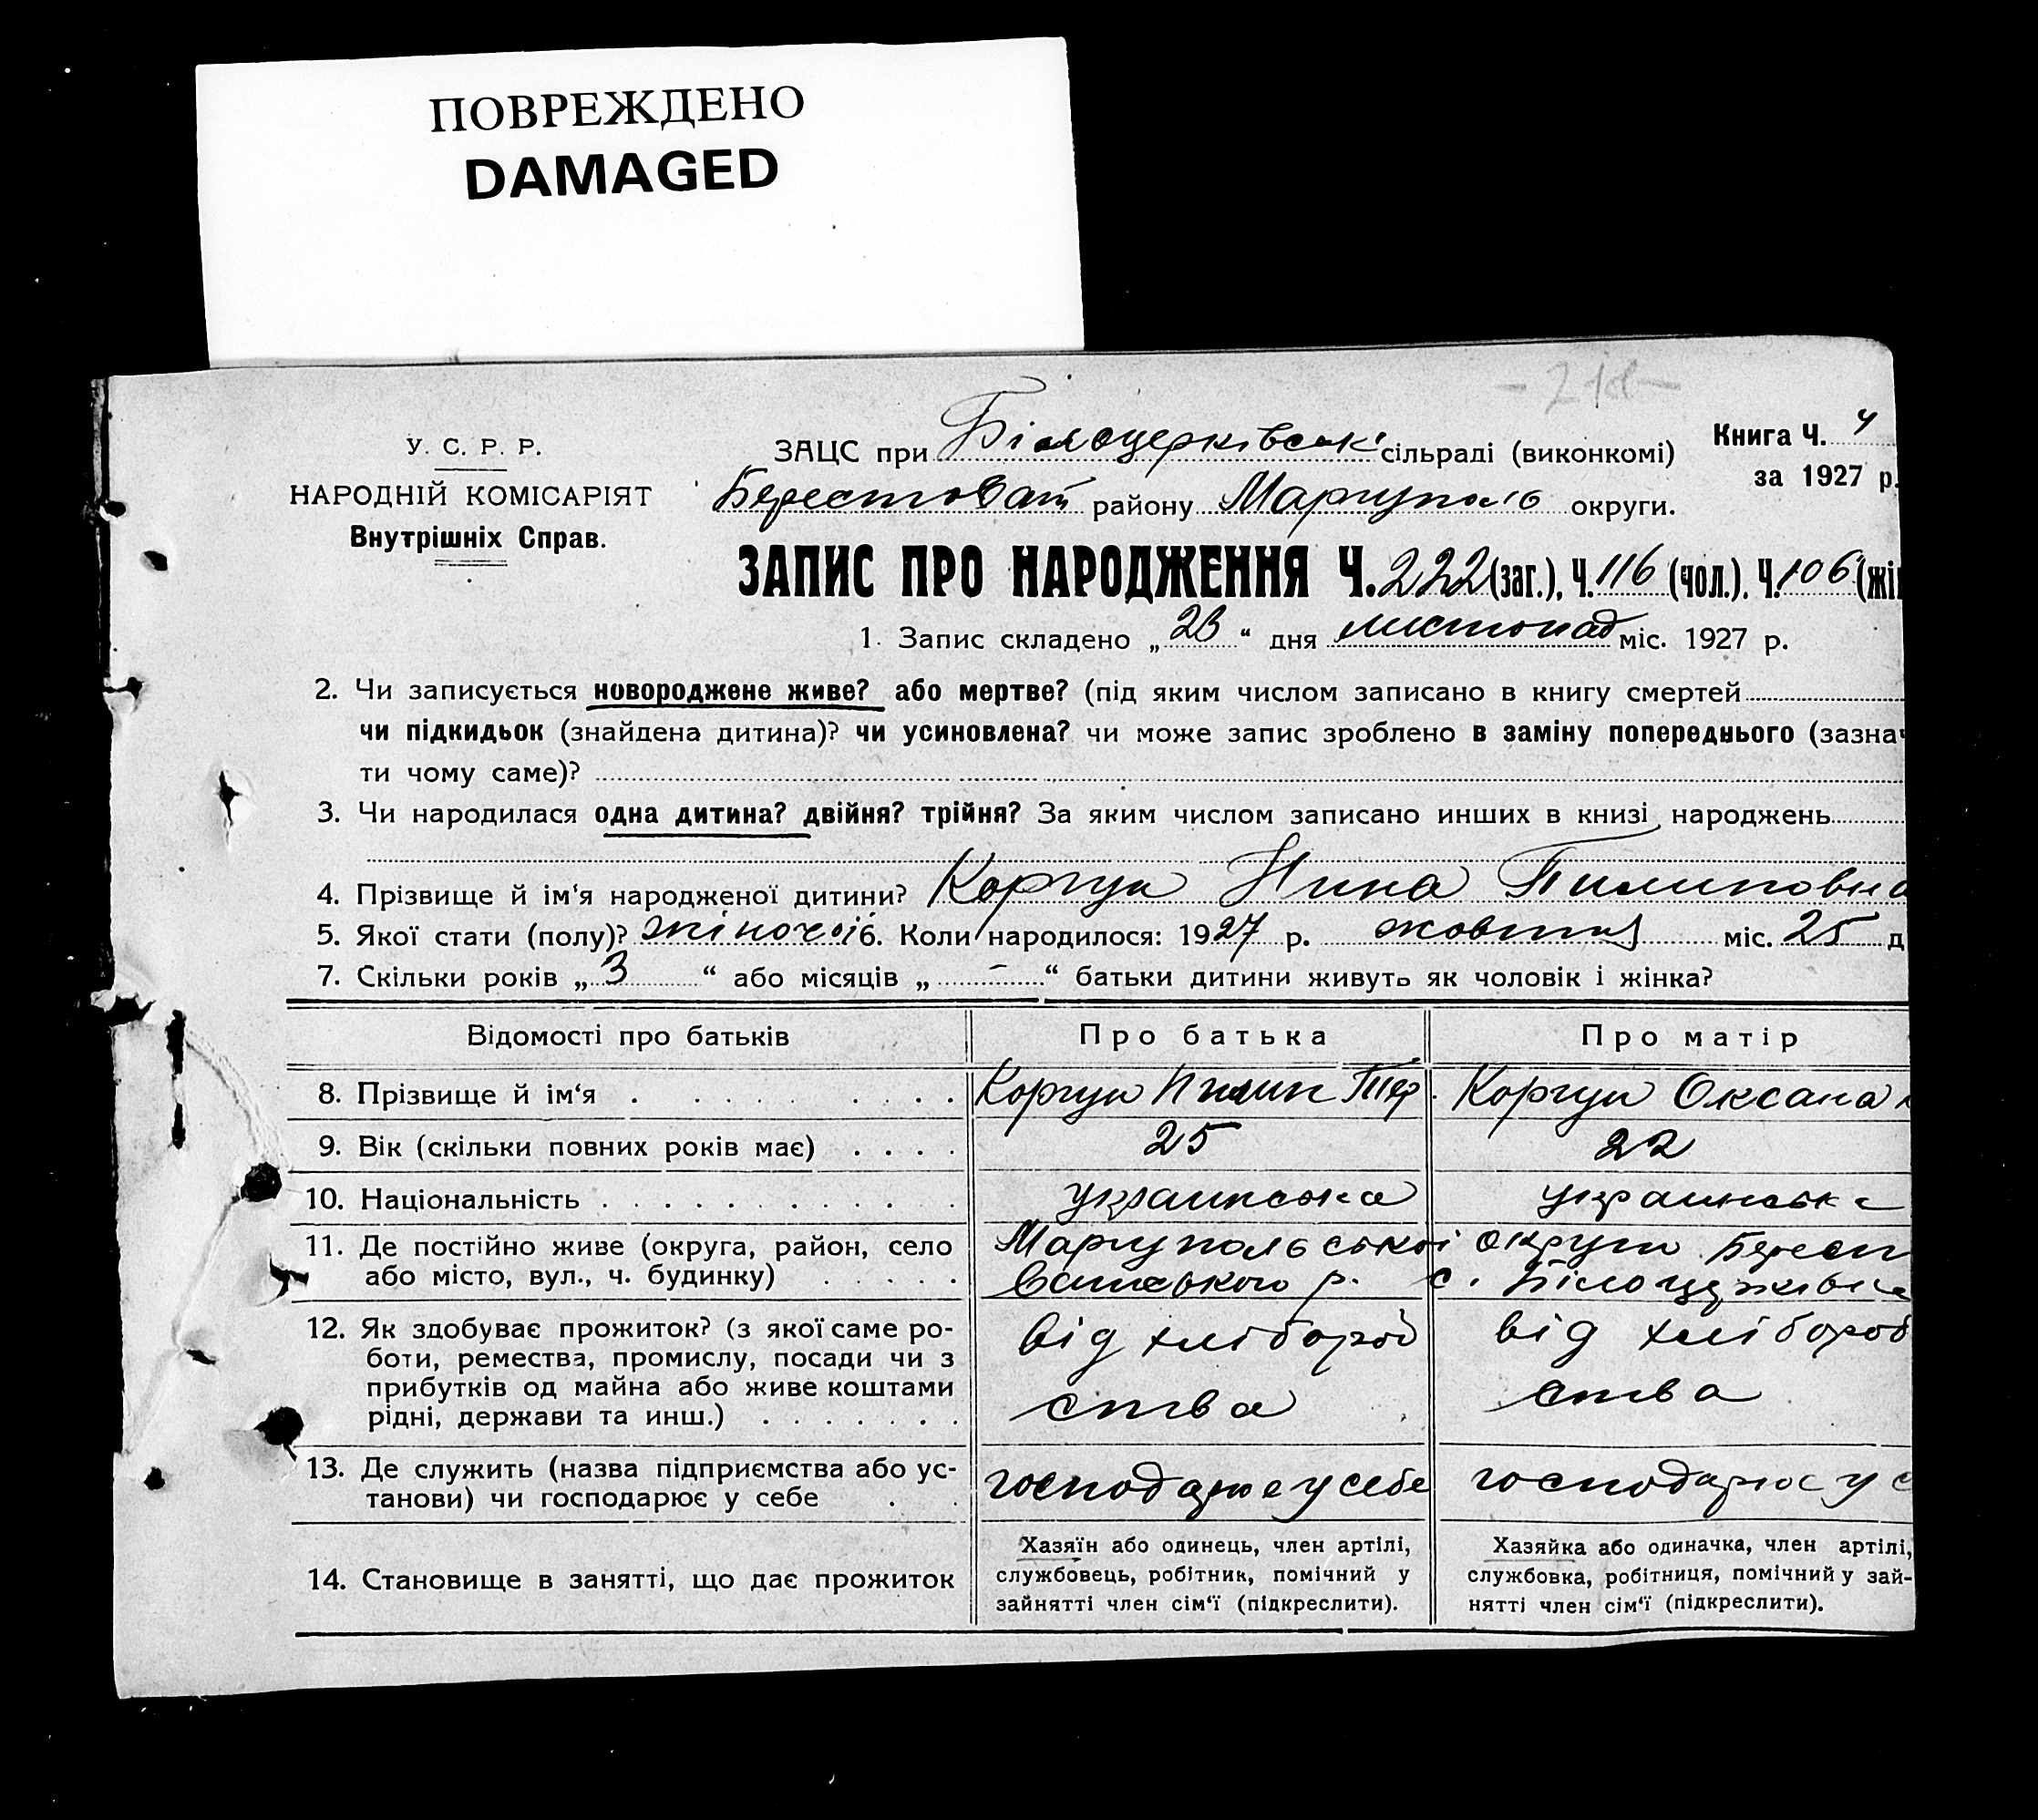 ПОВРЕЖДЕНО
DAMAGED
У. С. Р. Р.
НАРОДНІЙ КОМІСАРІЯТ
Внутрішніх Справ.
ЗАЦС при Білоцерківськ сільраді (виконкомі)
Книга Ч. 4
за 1927 р.
Берестоват району Маріуполь округи.
ЗАПИС ПРО НАРОДЖЕННЯ Ч. 222 (заг.), Ч. 116 (чол.). Ч. 106 (жі
1. Запис складено „ “ дня листопад міс. 1927 р.
2. Чи записується новороджене живе? або мертве? (під яким числом записано в книгу смертей
чи підкидьок (знайдена дитина)? чи усиновлена? чи може запис зроблено в заміну попереднього (зазнач
ти чому саме)?
3. Чи народилася одна дитина? двійня? трійня? За яким числом записано инших в книзі народжень
4. Прізвище й ім‘я народженої дитини? Коргун Нина Пилиповна
5. Якої стати (полу)? жіночої 6. Коли народилося: 1927 р. жовтня міс. 25 д
7. Скільки років „ 3 “ або місяців „ - “ батьки дитини живуть як чоловік і жінка?
Відомості про батьків Про батька Про матір
8. Прізвище й ім‘я Коргун Пилип Тер. Коргун Оксана
9. Вік (скільки повних років має) 25 22
10. Національність украинська украинська
11. Де постійно живе (округа, район, село Маріупольської округи Берест
або місто, вул., ч. будинку) ватського р. с. Білоцерківка
12. Як здобуває прожиток? (з якої саме ро- від хлібороб від хлібороб
боти, ремества, промислу, посади чи з
прибутків од майна або живе коштами ства ства
рідні, держави та инш.)
13. Де служить (назва підприємства або ус- господарює у себе господарює у с
танови) чи господарює у себе
14. Становище в занятті, що дає прожиток
Хазяїн або одинець, член артілі,
службовець, робітник, помічний у
зайнятті член сім‘ї (підкреслити).
Хазяйка або одиначка, член артілі,
службовка, робітниця, помічний у зай-
нятті член сім‘ї (підкреслити).